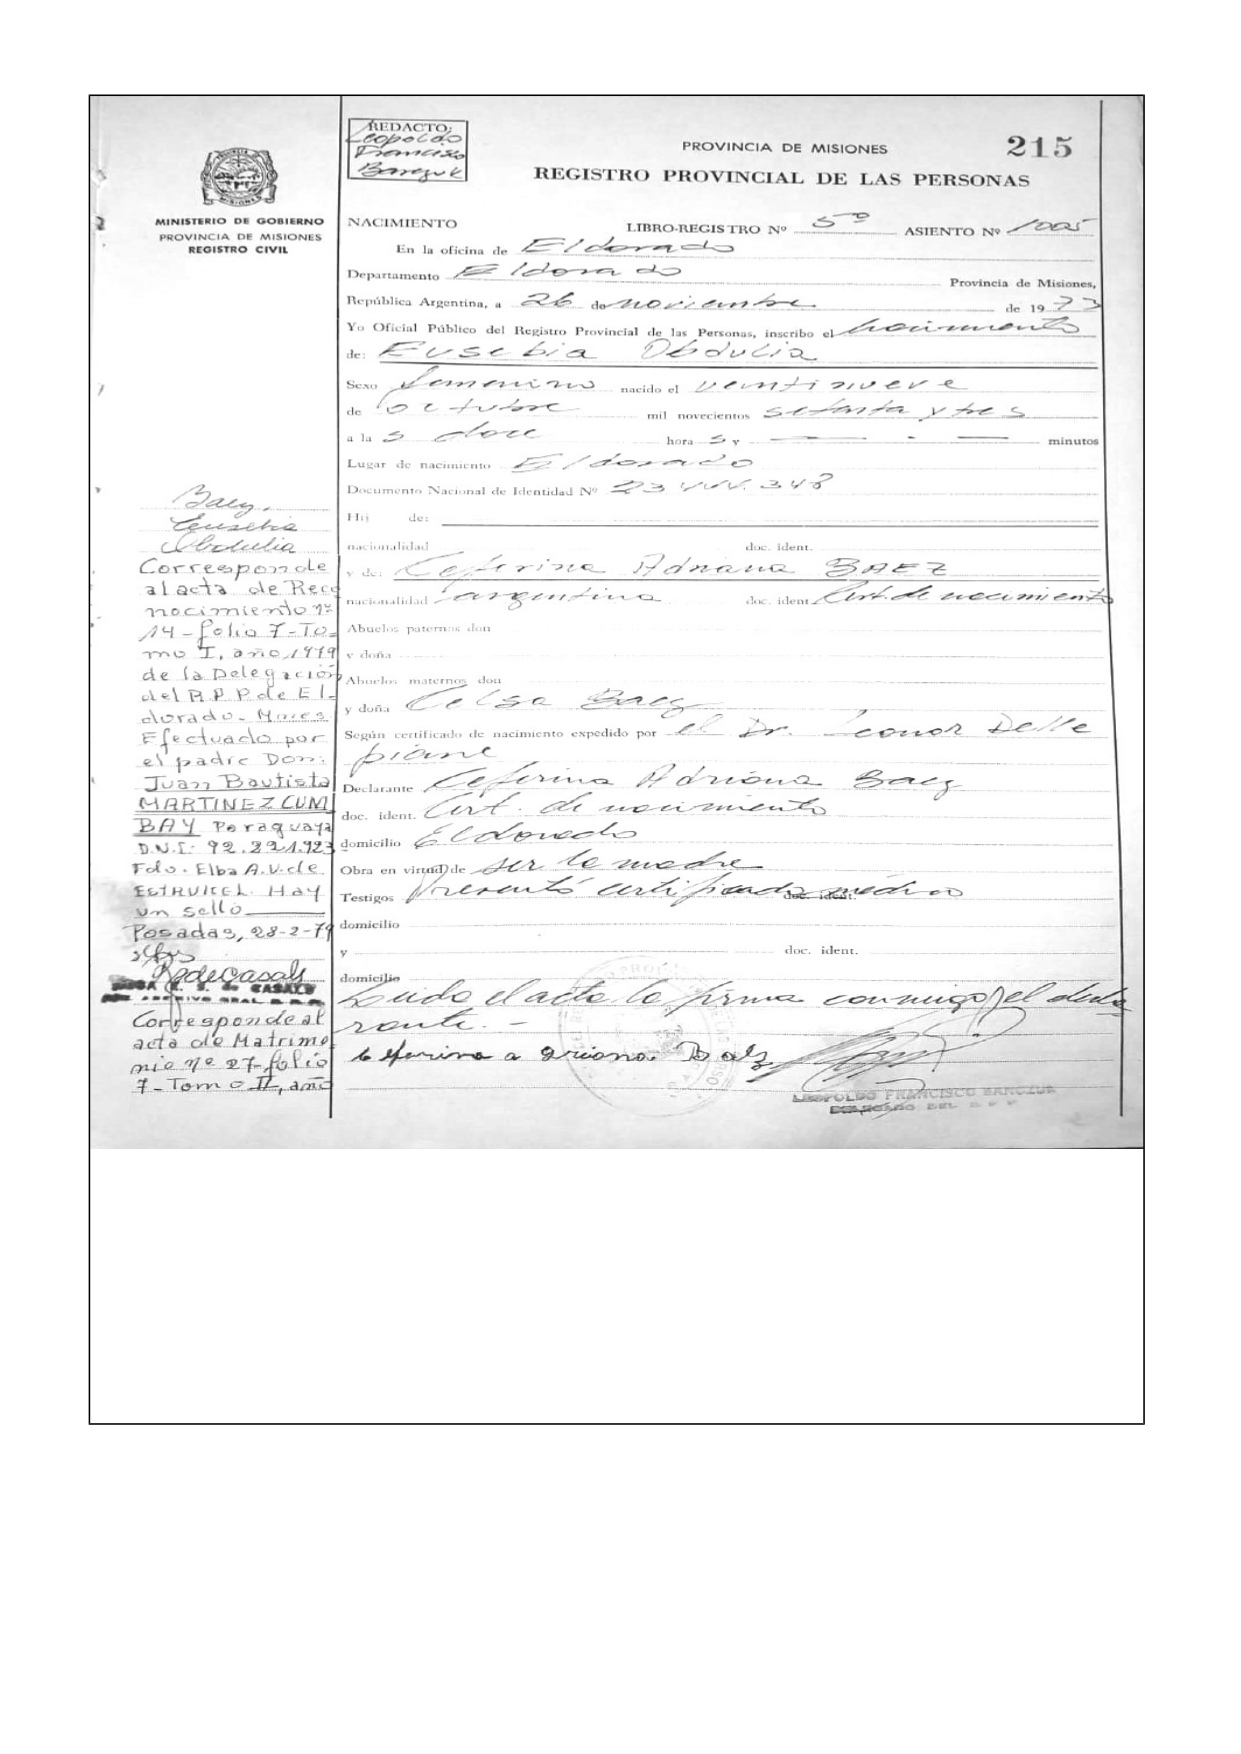 REDACTO:
Leopoldo
Francisco
PROVINCIA DE MISIONES
215
REGISTRO PROVINCIAL DE LAS PERSONAS
MINISTERIO DE GOBIERNO
PROVINCIA DE MISIONES
REGISTRO CIVIL
NACIMIENTO LIBRO-REGISTRO Nº 5º ASIENTO Nº 1005
En la oficina de Eldorado
Departamento Eldorado Provincia de Misiones,
República Argentina, a 26 de noviembre de 1973
Yo Oficial Público del Registro Provincial de las Personas, inscribo el nacimiento
de: Eusebia Obdulia
Sexo femenino nacido el veintinueve
de octubre mil novecientos setenta y tres
a las doce horas y minutos
Lugar de nacimiento Eldorado
Documento Nacional de Identidad Nº 23.444.348
Hij de:
nacionalidad doc. ident.
y de: Ceferina Adriana BAEZ
nacionalidad argentina doc. ident. Cert. de nacimiento
Abuelos paternos don
y doña
Abuelos maternos don
y doña Celsa Baez
Según certificado de nacimiento expedido por el Dr. Leonor Delle
piane
Declarante Ceferina Adriana Baez
doc. ident. Cert. de nacimiento
domicilio Eldorado
Obra en virtud de ser la madre
Testigos Presentó certificado médico doc. ident.
domicilio
y doc. ident.
domicilio
Leida el acta la firma conmigo el decla
rante.-
Ceferina adriana Baez
LEOPOLDO FRANCISCO
DELEGADO DEL R P P
Baez,
Eusebia
Obdulia
Corresponde
al acta de Reco
nocimiento nº
14-folio 7-To-
mo I, año 1979
de la Delegación
del R.P.P. de El-
dorado-Mnes.
Efectuado por
el padre Don:
Juan Bautista
MARTINEZ CUM
BAY Paraguaya
D.N.I: 92.221.923
Fdo. Elba A.V. de
Hay
un sello
Posadas, 28-2-79
R de Casals
Corresponde al
acta de Matrimo
nio nº 27-folio
7-Tomo II, año